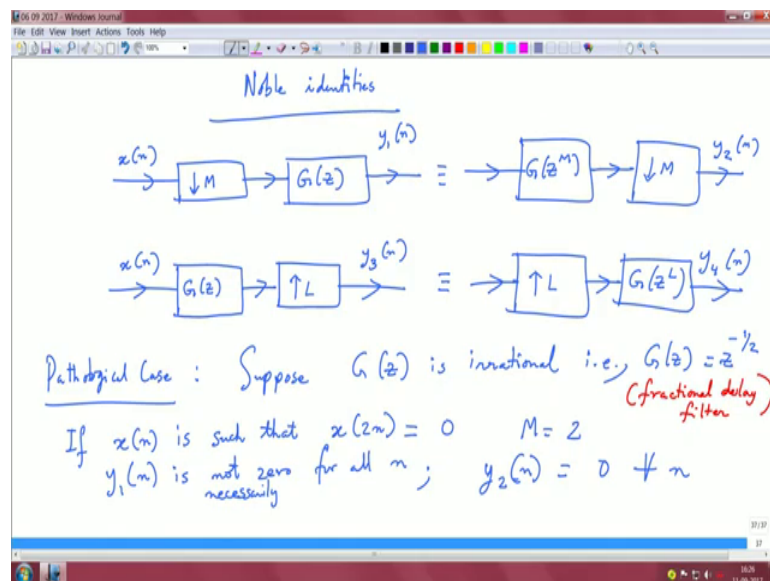 06 09 2017 - Windows Journal
File Edit View Insert Actions Tools Help
100%
Noble identities
x(n) ↓M G(z) y₁(n) ≡ G(z^M) ↓M y₂(n)
x(n) G(z) ↑L y₃(n) ≡ ↑L G(z^L) y₄(n)
Pathological Case : Suppose G(z) is irrational i.e., G(z) = z^{-1/2}
(fractional delay
filter)
If x(n) is such that x(2n) = 0 M = 2
y₁(n) is not zero for all n ; y₂(n) = 0 ∀ n
necessarily
37/37
37
16:26
11-09-2017